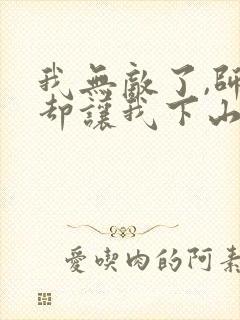 我無敵了,師
却讓我下山
愛喫肉的阿素